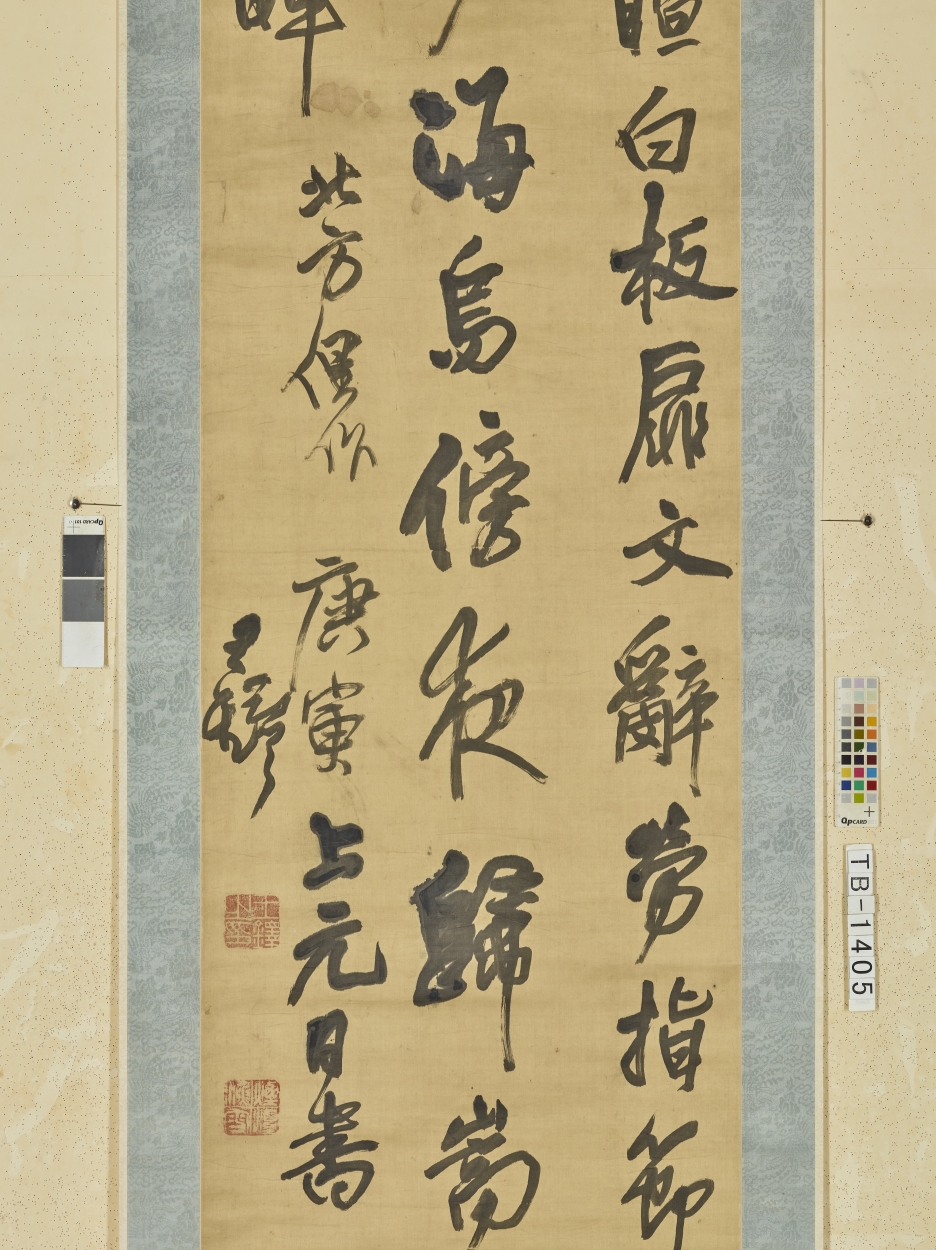 白板扉文辭勞指節
海鳥傍夜歸嵩
方俚作 庚寅上元日書
王鐸
TB-1405
QPCARD
QPCARD 101